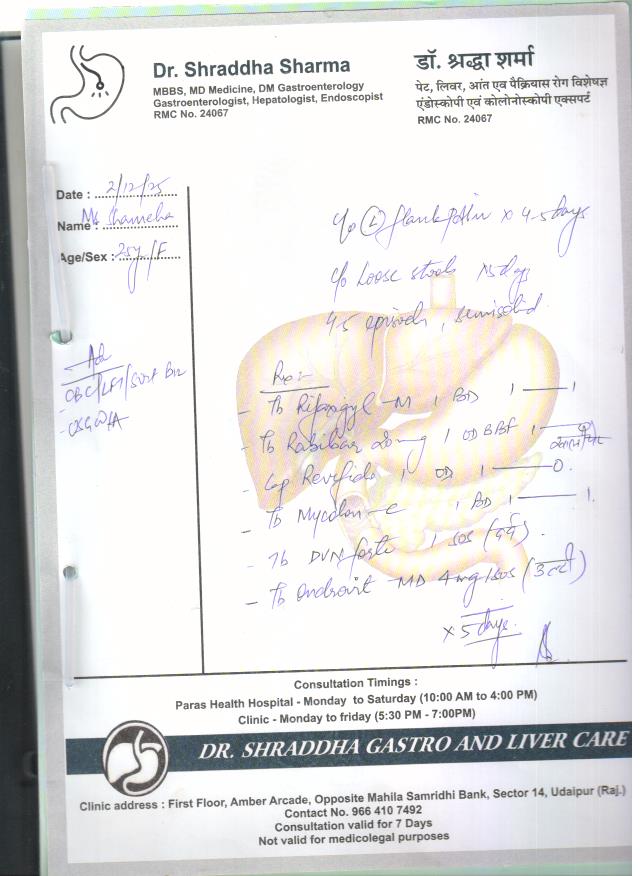 Dr. Shraddha Sharma
MBBS, MD Medicine, DM Gastroenterology
Gastroenterologist, Hepatologist, Endoscopist
RMC No. 24067
डॉ. श्रद्धा शर्मा
पेट, लिवर, आंत एव पैंक्रियास रोग विशेषज्ञ
एंडोस्कोपी एवं कोलोनोस्कोपी एक्सपर्ट
RMC No. 24067
Date : 2/12/25
Name : Ms
Age/Sex : 25y/F
c/o (L) flank pain x 4-5 days
c/o Loose stools x 5 days
4-5 episodes, semisolid
Adv
CBC/LFT/
USG W/A
Rx :-
- Tb M 1 BD 1 — 1
- Tb 20mg 1 OD BBF 1 —
- Cap 1 OD 1 — 0.
- Tb Mycolon-C 1 BD 1 — 1.
- Tb DVN forte 1 SOS (दर्द).
- Tb MD 4mg 1 SOS (उल्टी)
x 5 days
Consultation Timings :
Paras Health Hospital - Monday to Saturday (10:00 AM to 4:00 PM)
Clinic - Monday to friday (5:30 PM - 7:00PM)
DR. SHRADDHA GASTRO AND LIVER CARE
Clinic address : First Floor, Amber Arcade, Opposite Mahila Samridhi Bank, Sector 14, Udaipur (Raj.)
Contact No. 966 410 7492
Consultation valid for 7 Days
Not valid for medicolegal purposes